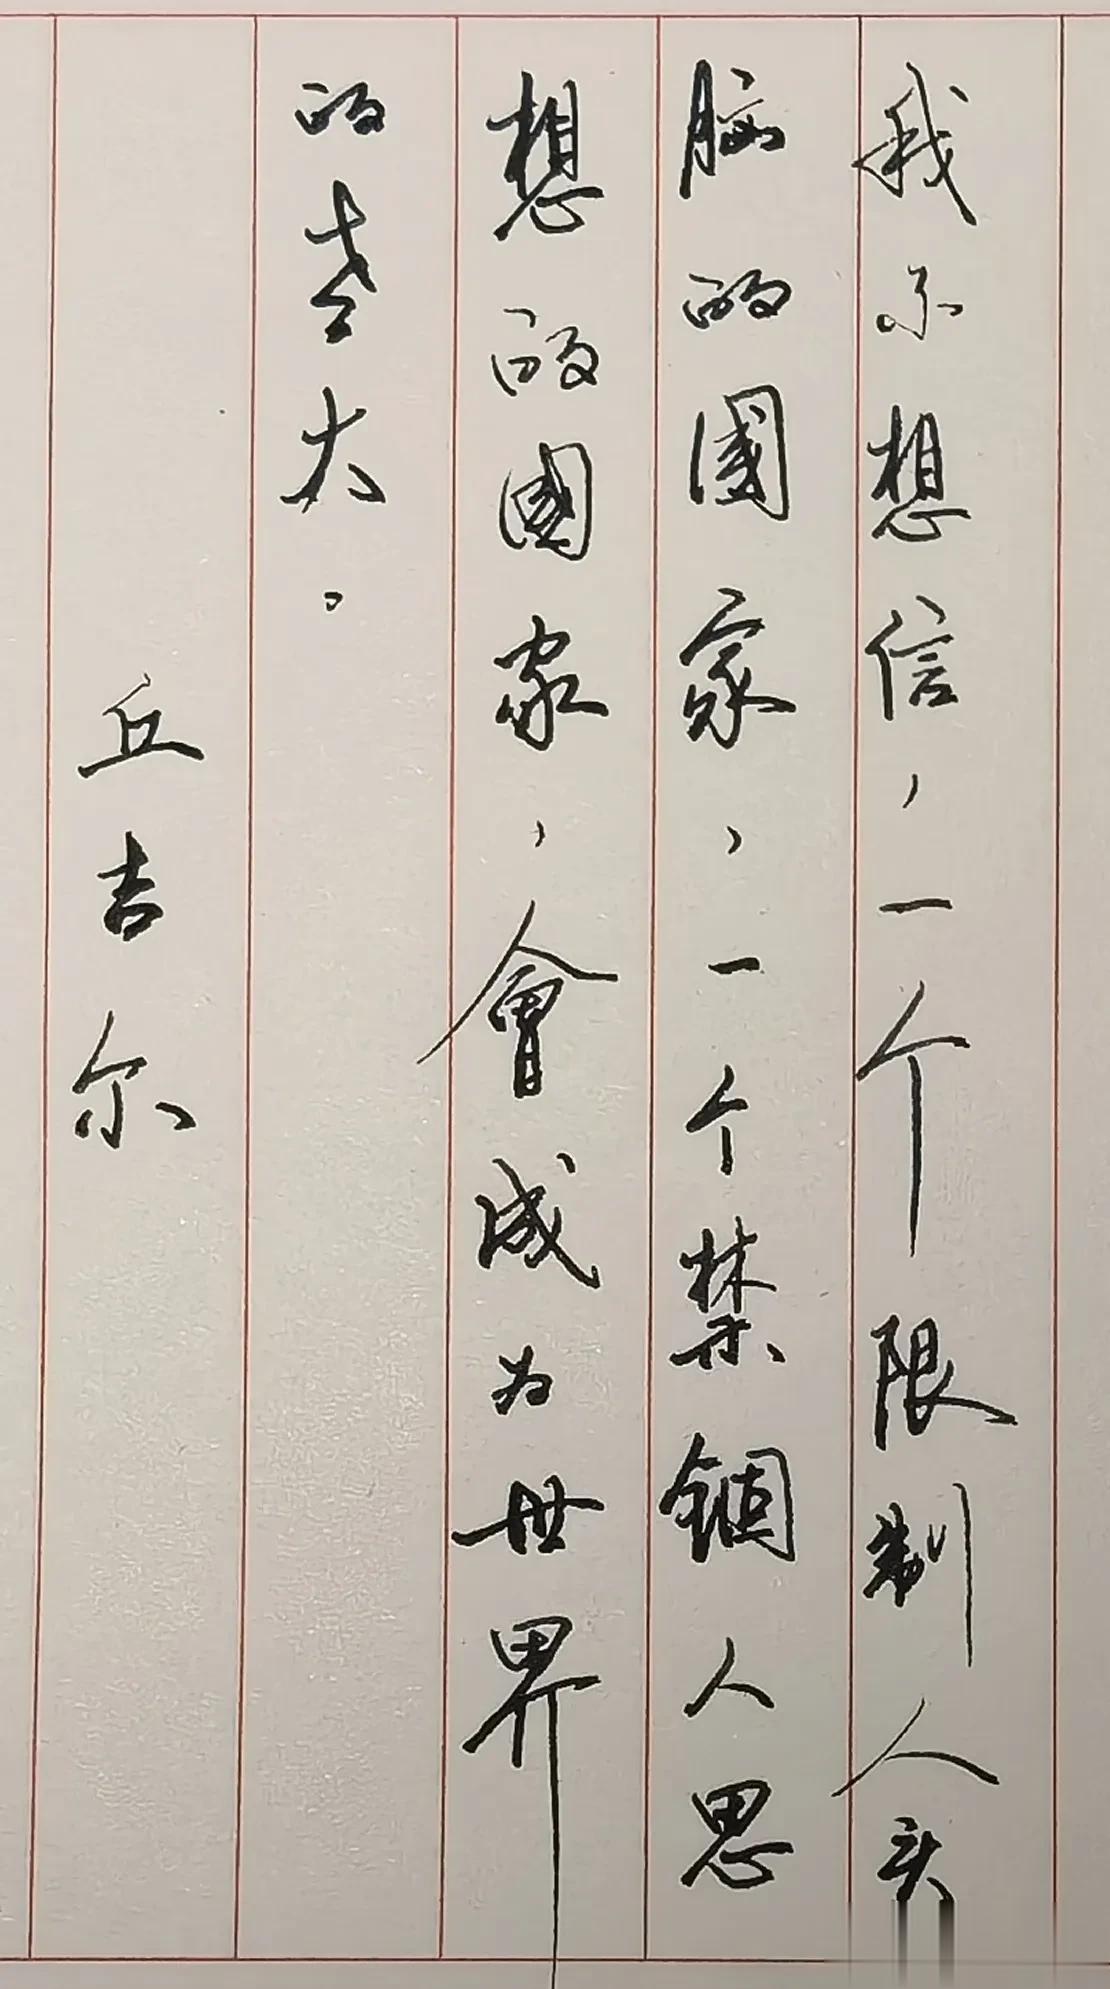 我不想信，一个限制人头
脑的國家，一个禁錮人思
想的國家，會成为世界
的老大。
丘吉尔